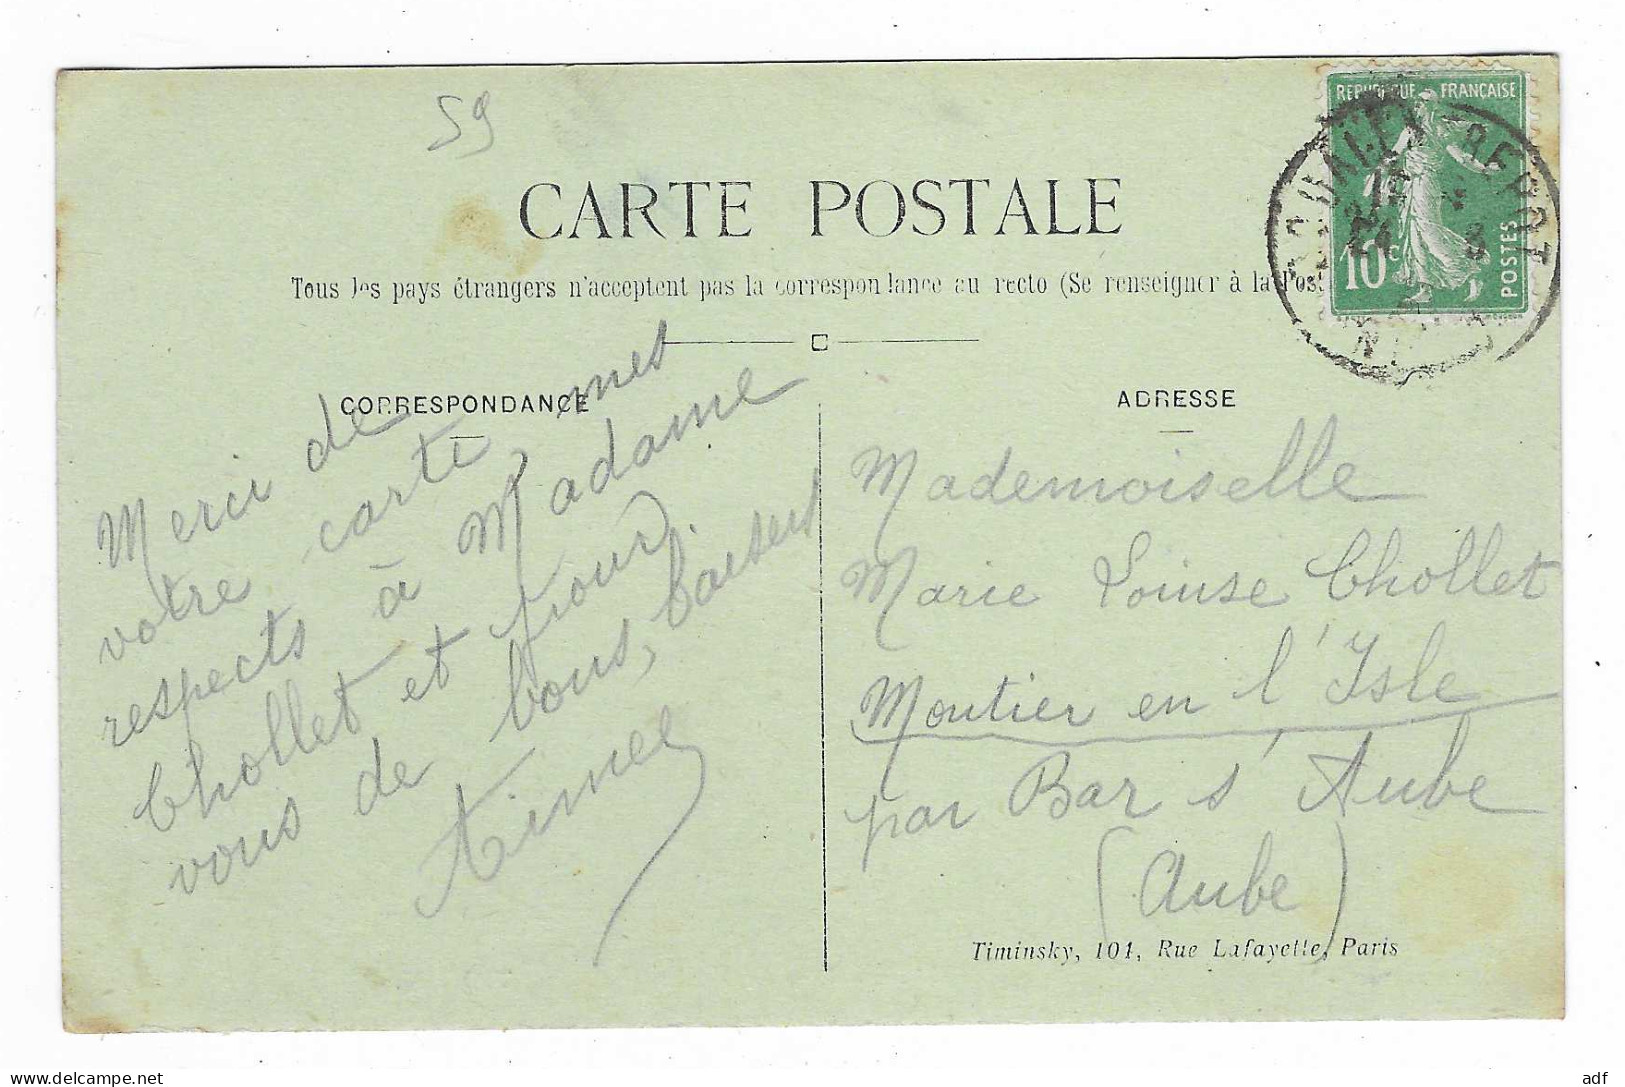 59
RÉPUBLIQUE FRANÇAISE
10c
POSTES
CARTE POSTALE
Tous les pays étrangers n'acceptent pas la correspondance au recto (Se renseigner à la Pos
CORRESPONDANCE
Merci de
votre carte mes
respects à Madame
Chollet et pour
vous de bons baisers
Aimee
ADRESSE
Mademoiselle
Marie Louise Chollet
Moutier en l'Isle
par Bar s' Aube
(Aube)
Timinsky, 101, Rue Lafayette, Paris
adf